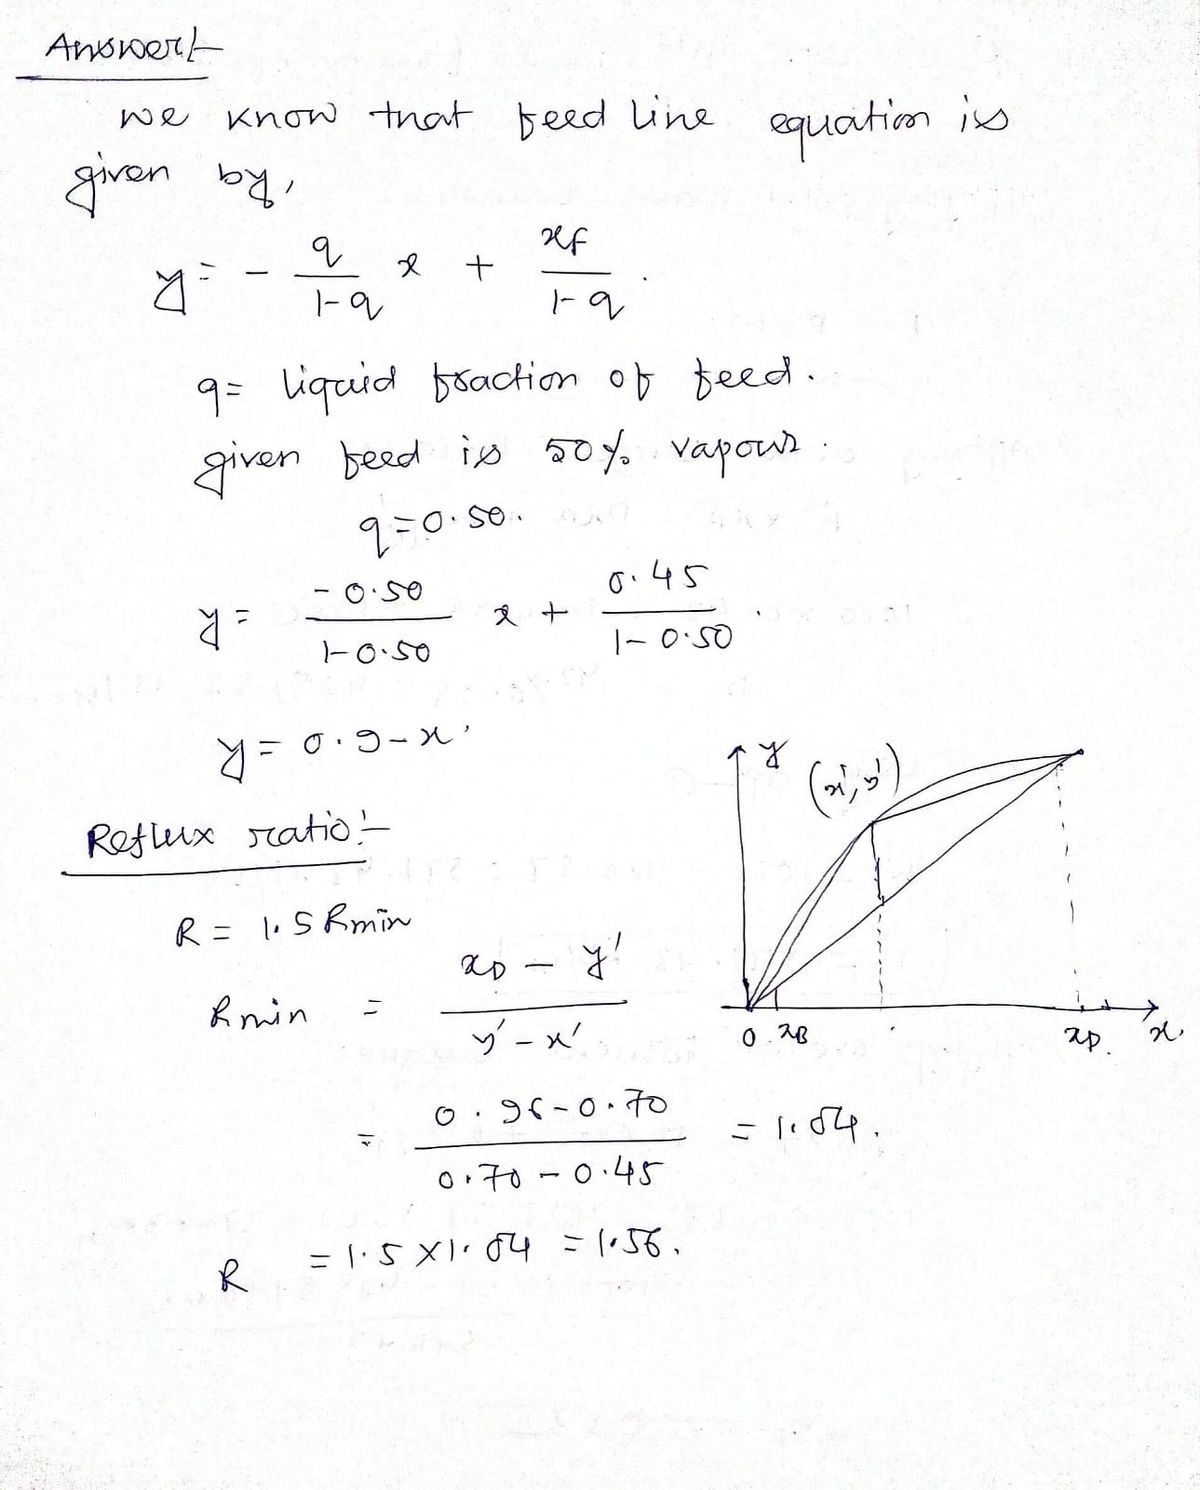 Answer:-
we know that feed line equation is
given by,
y = - q/1-q x + xF/1-q.
q = liquid fraction of feed.
given feed is 50% vapour.
q = 0.50.
y = -0.50/1-0.50 x + 0.45/1-0.50.
y = 0.9-x.
Reflux ratio:-
R = 1.5 Rmin
Rmin = xD - y'/y' - x'
= 0.96-0.70/0.70-0.45 = 1.04.
R = 1.5 X 1.04 = 1.56.
y
(x', y')
0 xB xD. x.